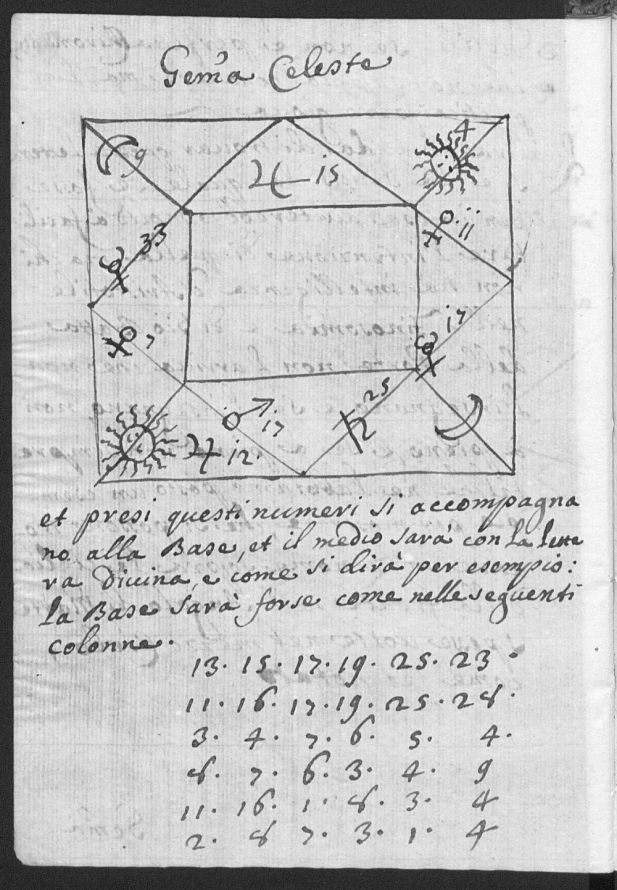 Gem̃a Celeste
☽ 9
♃ 15
4 ☉
♀ 11
☿ 33
♀ 7
☿ 17
☉
♃ 12
♂ 17
♄ 25
☽
et presi questi numeri si accompagna
no alla Base, et il medio sarà con la lette
ra divina, e come si dirà per esempio:
la Base sarà forse come nelle seguenti
colonne.
13. 15. 17. 19. 25. 23.
11. 16. 17. 19. 25. 28.
3. 4. 7. 6. 5. 4.
8. 7. 6. 3. 4. 9
11. 16. 1. 8. 3. 4
2. 8 7. 3. 1. 4